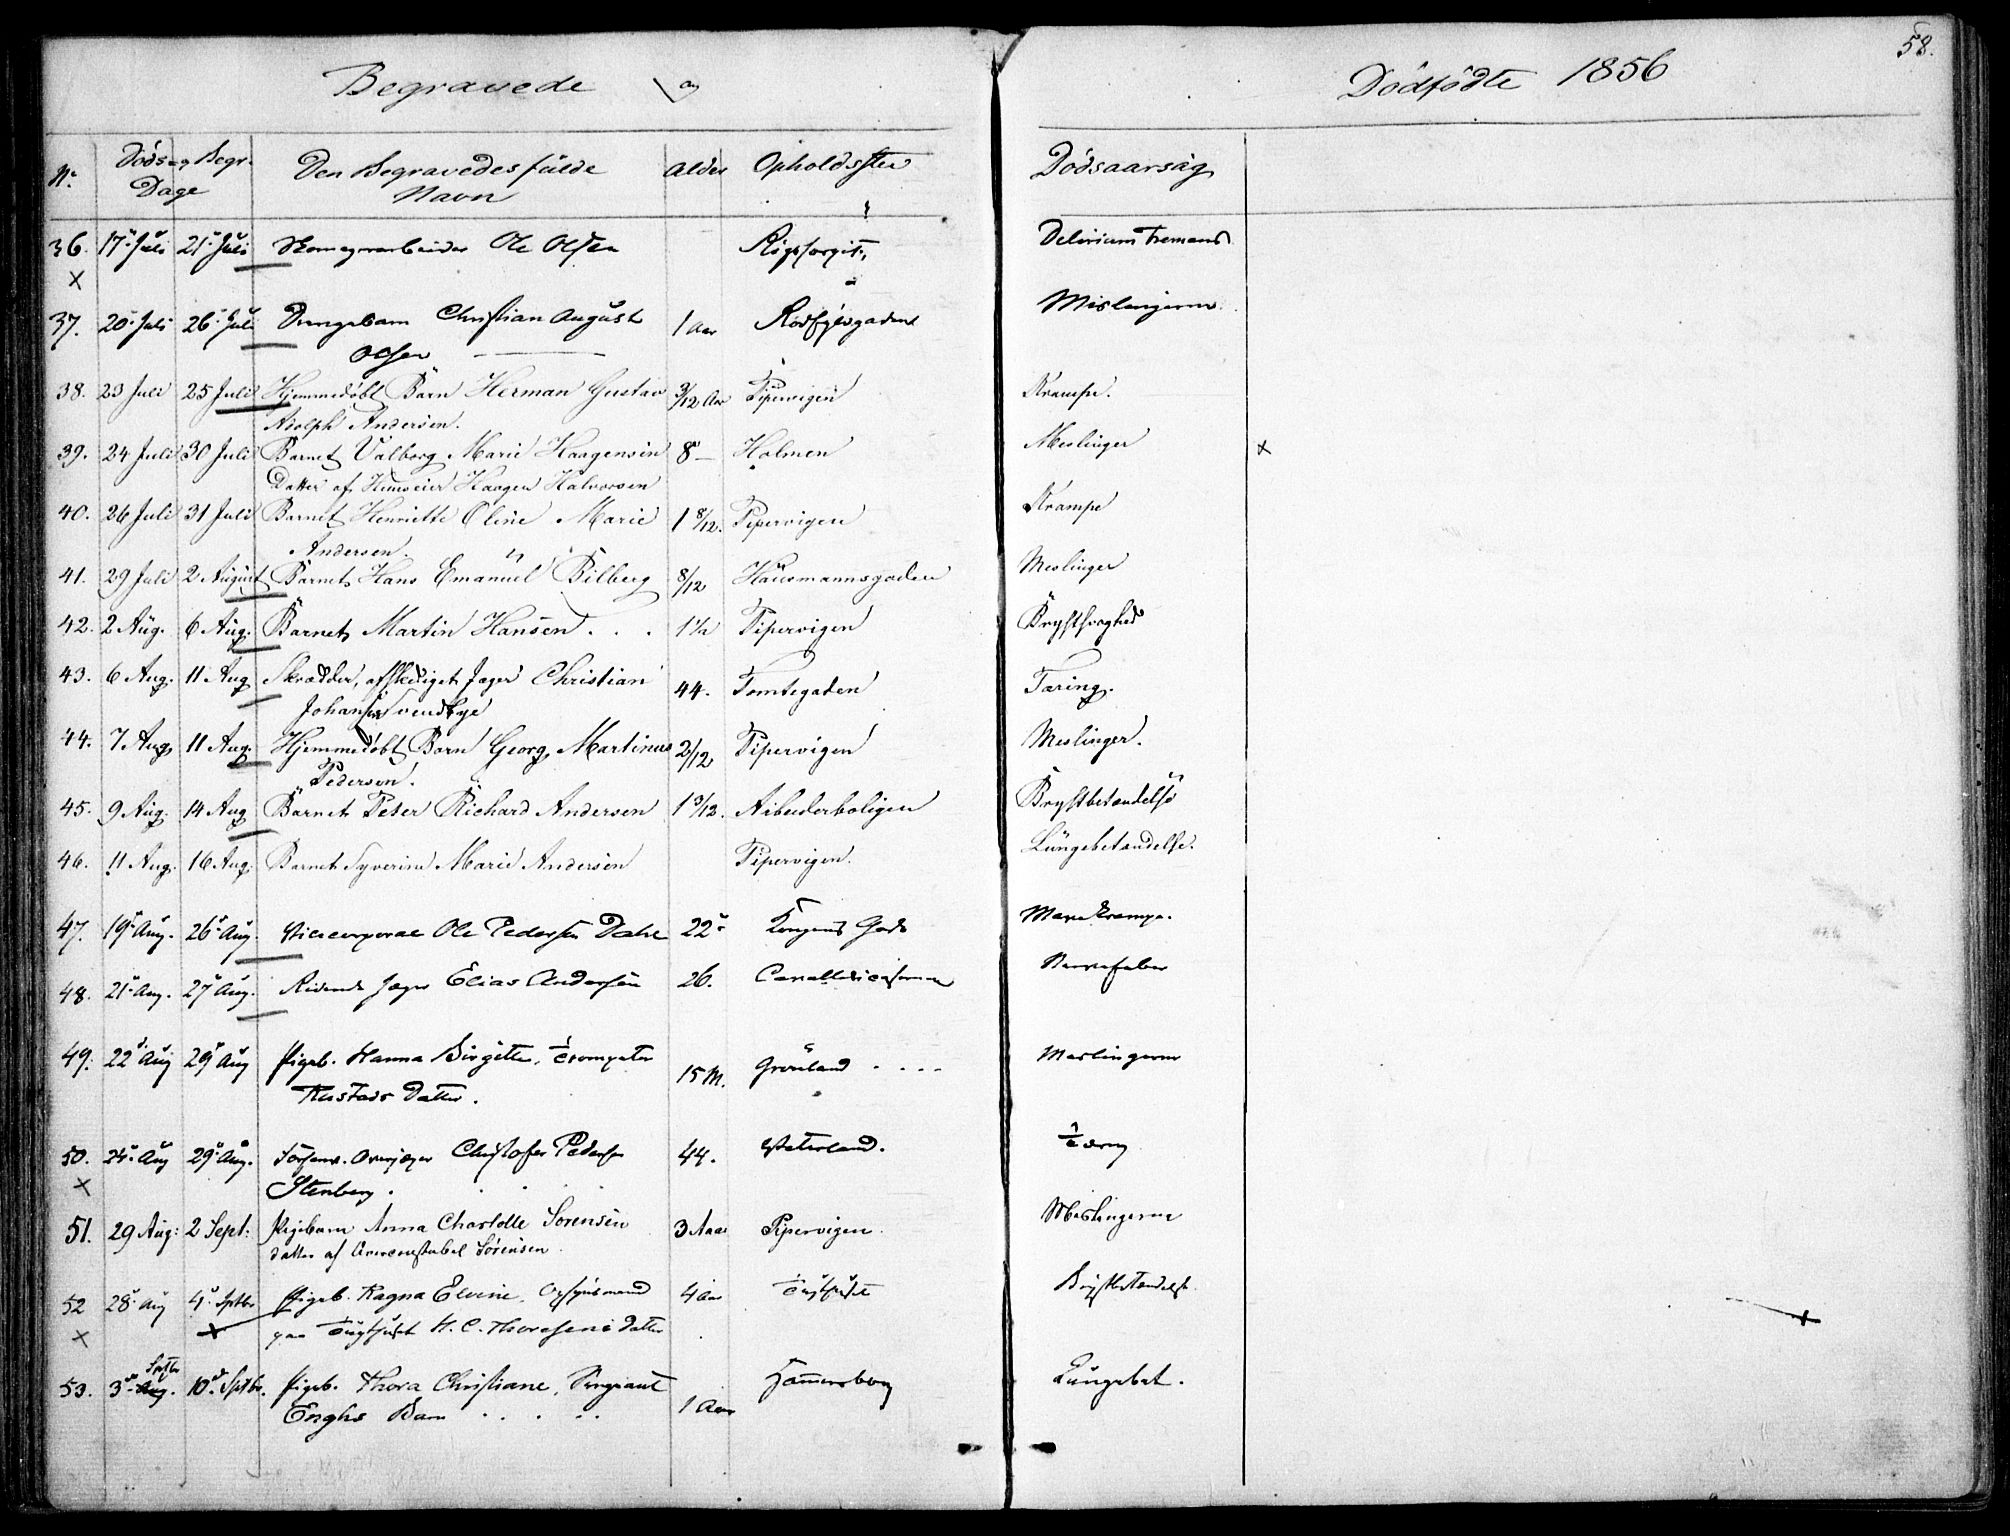 58.
Begravede og Dödfödte 1856
No. Döds og Begr. Dage Den Begravedes fulde Navn Alder Opholdsted Dödsaarsag
36. 17de Juli 21de Juli Ole Olsen Delirium Tremens
37. 20de Juli 26de Juli Drengebarn Christian August 1 Aar Rödfyldgaden Meslingerne
Olsen
38. 23 Juli 25 Juli Hjemmedøbt Barn Herman Gustav 3/12 Aar Pipervigen Krampe.
Adolph Andersen.
39. 24 Juli 30 Juli Barnet Valborg Marie Haagensen 8 — Holmen Meslinger
Datter af Huuseier Haagen Halvorsen
40. 26 Juli 31 Juli Barnet Henriette Oline Marie 1 8/12. Pipervigen Krampe
Andersen.
41. 29 Juli 2 August Barnet Hans Emanuel Bilberg 8/12 Hausmannsgaden Meslinger
42. 2 Aug. 6 Aug. Barnet Martin Hansen . . . 1 1/2 Pipervigen Brystsvaghed
43. 6 Aug. 11 Aug Skrædder, afskediget Jæger Christian 44. Tomtegaden Tæring.
Johansen Svendbye
44. 7 Aug. 11 Aug. Hjemmedøbt Barn Georg Martinus 2/12 Pipervigen Meslinger.
Pedersen.
45. 9 Aug. 14 Aug Barnet Peter Richard Andersen 1 3/12. Arbeiderboligen Brystbetændelse
46. 11 Aug. 16 Aug. Barnet Syverine Marie Andersen Pipervigen. Lungebetændelse.
47. 19de Aug. 26de Aug. Vicecorporal Ole Pedersen Dahl 22 Kongens Gade Mavekrampe.
48. 21de Aug. 27de Aug. Ridende Jæger Elias Andersen 26. Nervefeber
49. 22de Aug 29de Aug Pigeb. Hanna Birgitte, Trompeter 15 M. Grönland . . . . Meslingerne
Rustads Datter.
50. 24de Aug 29de Aug. Overjæger Christofer Pedersen 44. Vaterland. Tæring
Stenberg.
51. 29 Aug: 2 Sept: Pigebarn Anna Charlotte Sorensen 3 Aar Pipervigen. Meslingerne
datter af Overconstabel Sörensen.
52 28de Aug 4de Septbr Pigeb. Ragna Elvine, Opsynsmand 4 Aar Tugthuset Brystbetændelse
paa Tugthuset H. C. Thoresens Datter
53. 3de Septbr Aug. 10de Septbr. Pigeb. Thora Christiane, Sergeant 1 Aar Hammersborg Lungebet.
Enghs Barn . . . . .